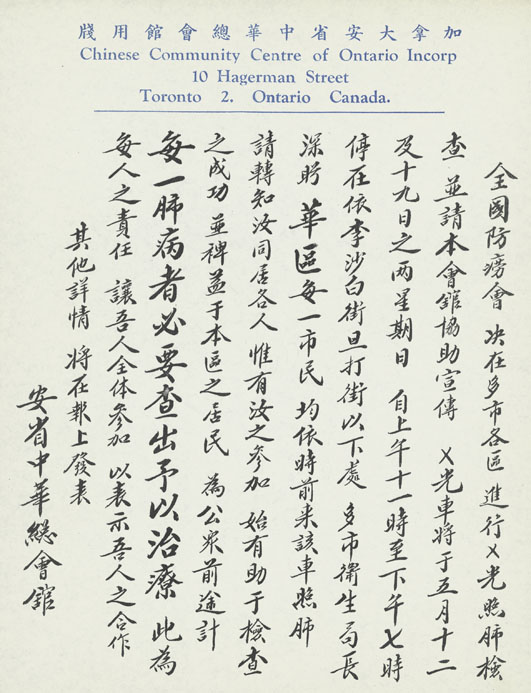 加拿大安省中華總會館用牋
Chinese Community Centre of Ontario Incorp
10 Hagerman Street
Toronto 2. Ontario Canada.
全國防癆會 決在多市各區 進行X光照肺檢
查 並請本會館協助宣傳 X光車將于五月十二
及十九日之兩星期日 自上午十一時至下午七時
停在依李沙白街旦打街以下處 多市衛生局長
深盼 華區每一市民 均依時前來該車照肺
請轉知汝同居各人 惟有汝之參加 始有助于檢查
之成功 並裨益于本區之居民 為公眾前途計
每一肺病者必要查出予以治療 此為
每人之責任 讓吾人全体參加 以表示吾人之合作
其他詳情 將在報上發表
安省中華總會館